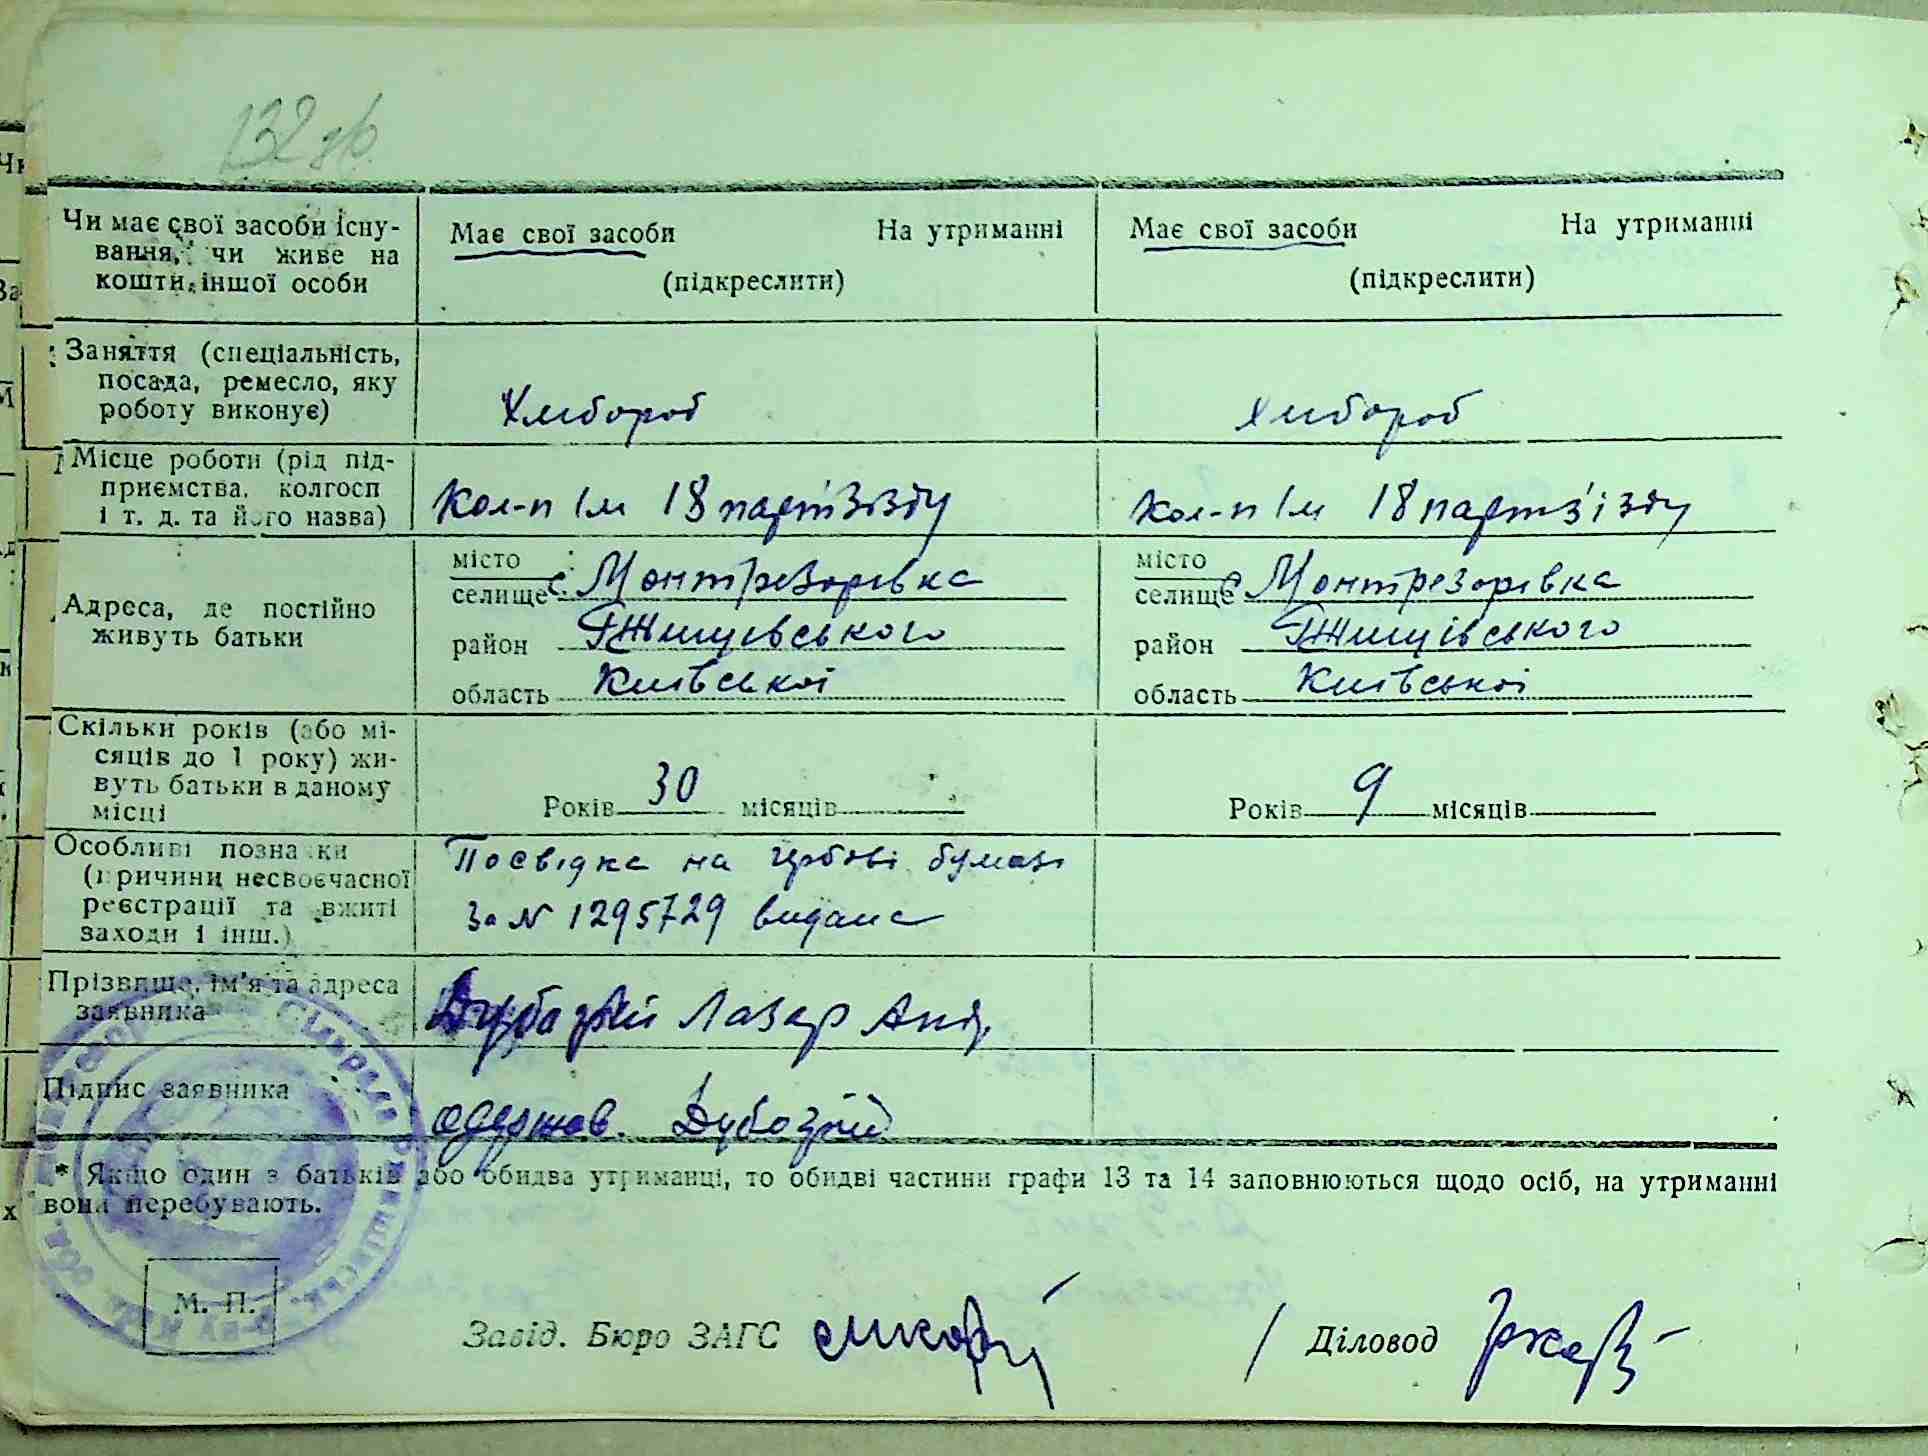 132 зв.
Чи має свої засоби існу-
вання, чи живе на
кошти іншої особи
Має свої засоби На утриманні
(підкреслити)
Має свої засоби На утриманні
(підкреслити)
Заняття (спеціальність,
посада, ремесло, яку
роботу виконує)
Хлибороб
Хлибороб
Місце роботи (рід під-
приємства, колгосп
і т. д. та його назва)
Кол-п ім 18 партзізду
Кол-п ім 18 партз'ізду
Адреса, де постійно
живуть батьки
місто
селище с. Монтрезорівка
район Ржищівського
область Київської
місто
селище с Монтрезорівка
район Ржищівського
область Київської
Скільки років (або мі-
сяців до 1 року) жи-
вуть батьки в даному
місці
Років 30 місяців
Років 9 місяців
Особливі познаки
(причини несвоєчасної
реєстрації та вжиті
заходи і інш.)
Посвідка на гербові бумазі
за № 1295729 видана
Прізвище, ім'я та адреса
заявника
Лазар
Підпис заявника
одержав.
* Якщо один з батьків або обидва утриманці, то обидві частини графи 13 та 14 заповнюються щодо осіб, на утриманні
вони перебувають.
М. П.
Завід. Бюро ЗАГС
/ Діловод